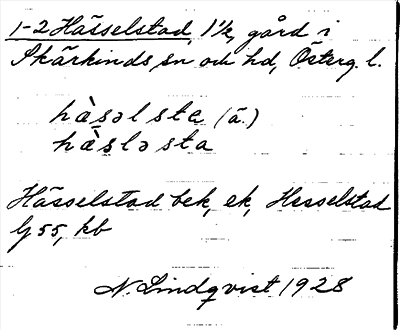 1-2 Hässelstad, 1 1/2, gård i
Skärkinds sn och hd, Österg. l.
hàsəlsta (ä.)
hàsləsta
Hässelstad bek, ek, Hesselstad
lj 55, kb
N. Lindqvist 1928